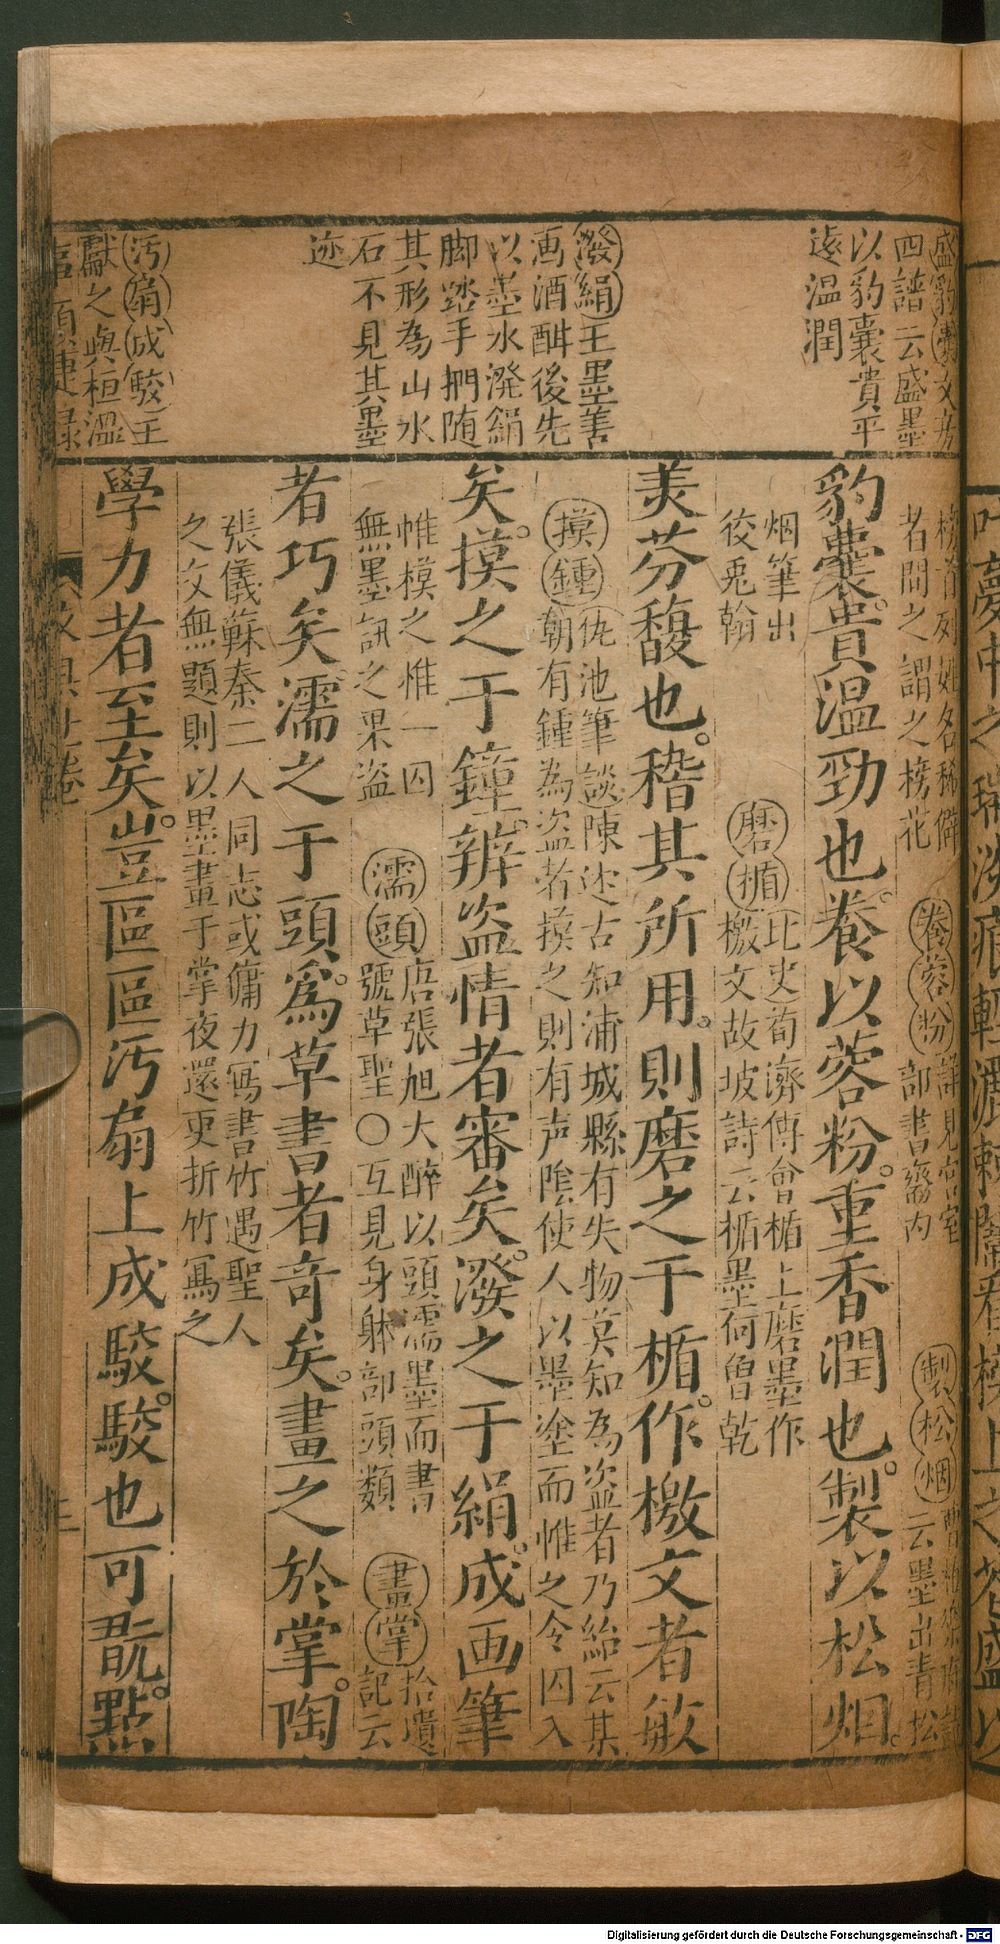 盛豹囊文房
四譜云盛墨
以豹囊貴乎
遠温潤
潑絹王墨善
画酒酣後先
以墨水潑絹
脚踏手捫随
其形為山水
石不見其墨
迹
汚扇成駮王
獻之與桓溫
榜首列姓名稀僻
者問之謂之榜花
養蓉粉詳見宮室
部書齋内
製松烟
云墨出青松
豹囊。貴温勁也。養以蓉粉。重香潤也。製以松烟。
烟筆出
狡兎翰
磨楯北史荀濟傳會楯上磨墨作
檄文故坡詩云楯墨何曾乾
羙芬馥也。稽其所用。則磨之于楯。作檄文者敏
摸鍾仇池筆談陳述古知浦城縣有失物莫知為盗者乃紿云某
朝有鍾為盗者摸之則有声陰使人以墨塗而帷之令囚入
矣。摸之于鐘。辨盗情者審矣。潑之于絹。成画筆
帷模之惟一囚
無墨訊之果盗
濡頭唐張旭大醉以頭濡墨而書
號草聖○互見身躰部頭類
畫掌拾遺
記云
者巧矣。濡之于頭。為草書者竒矣。畫之於掌。陶
張儀蘇秦二人同志或傭力寫書竹遇聖人
之文無題則以墨畫于掌夜還更折竹寫之
學力者至矣。豈區區汚扇上成駮。駮也可翫。點